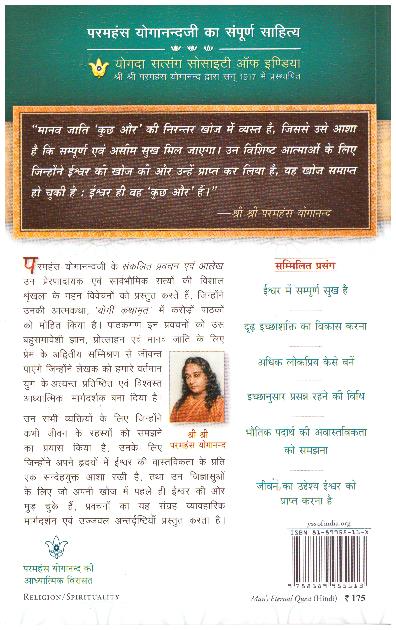 परमहंस योगानन्दजी का संपूर्ण साहित्य
योगदा सत्संग सोसाइटी ऑफ इण्डिया
श्री श्री परमहंस योगानन्द द्वारा सन् 1917 में प्रस्थापित
“मानव जाति ‘कुछ और’ की निरन्तर खोज में व्यस्त है, जिससे उसे आशा
है कि सम्पूर्ण एवं असीम सुख मिल जाएगा। उन विशिष्ट आत्माओं के लिए
जिन्होंने ईश्वर की खोज की और उन्हें प्राप्त कर लिया है, यह खोज समाप्त
हो चुकी है : ईश्वर ही वह ‘कुछ और’ है।”
—श्री श्री परमहंस योगानन्द
परमहंस योगानन्दजी के संकलित प्रवचन एवं आलेख
उन प्रेरणादायक एवं सार्वभौमिक सत्यों की विशाल
श्रृंखला के गहन विवेचनों को प्रस्तुत करते हैं, जिन्होंने
उनकी आत्मकथा, ‘योगी कथामृत’ में करोड़ों पाठकों
को मोहित किया है। पाठकगण इन प्रवचनों को उस
बहुरागावेशी ज्ञान, प्रोत्साहन एवं मानव जाति के लिए
प्रेम के अद्वितीय सम्मिश्रण से जीवन्त
पाएंगे जिन्होंने लेखक को हमारे वर्तमान
युग के अत्यन्त प्रतिष्ठित एवं विश्वस्त
आध्यात्मिक मार्गदर्शक बना दिया है
उन सभी व्यक्तियों के लिए जिन्होंने
कभी जीवन के रहस्यों को समझने
का प्रयास किया है, उनके लिए
जिन्होंने अपने हृदयों में ईश्वर की वास्तविकता के प्रति
एक सन्देहयुक्त आशा रखी है, तथा उन जिज्ञासुओं
के लिए जो अपनी खोज में पहले ही ईश्वर की ओर
मुड़ चुके हैं, प्रवचनों का यह संग्रह व्यावहारिक
मार्गदर्शन एवं उज्ज्वल अन्तर्दृष्टियाँ प्रस्तुत करता है।
श्री श्री
परमहंस योगानन्द
सम्मिलित प्रसंग
ईश्वर में सम्पूर्ण सुख है
दृढ़ इच्छाशक्ति का विकास करना
अधिक लोकप्रिय कैसे बनें
इच्छानुसार प्रसन्न रहने की विधि
भौतिक पदार्थ की अवास्तविकता
को समझना
जीवन का उद्देश्य ईश्वर को
प्राप्त करना है
परमहंस योगानन्द की
आध्यात्मिक विरासत
RELIGION/SPIRITUALITY
yssofindia.org
Man's Eternal Quest (Hindi) ₹ 175